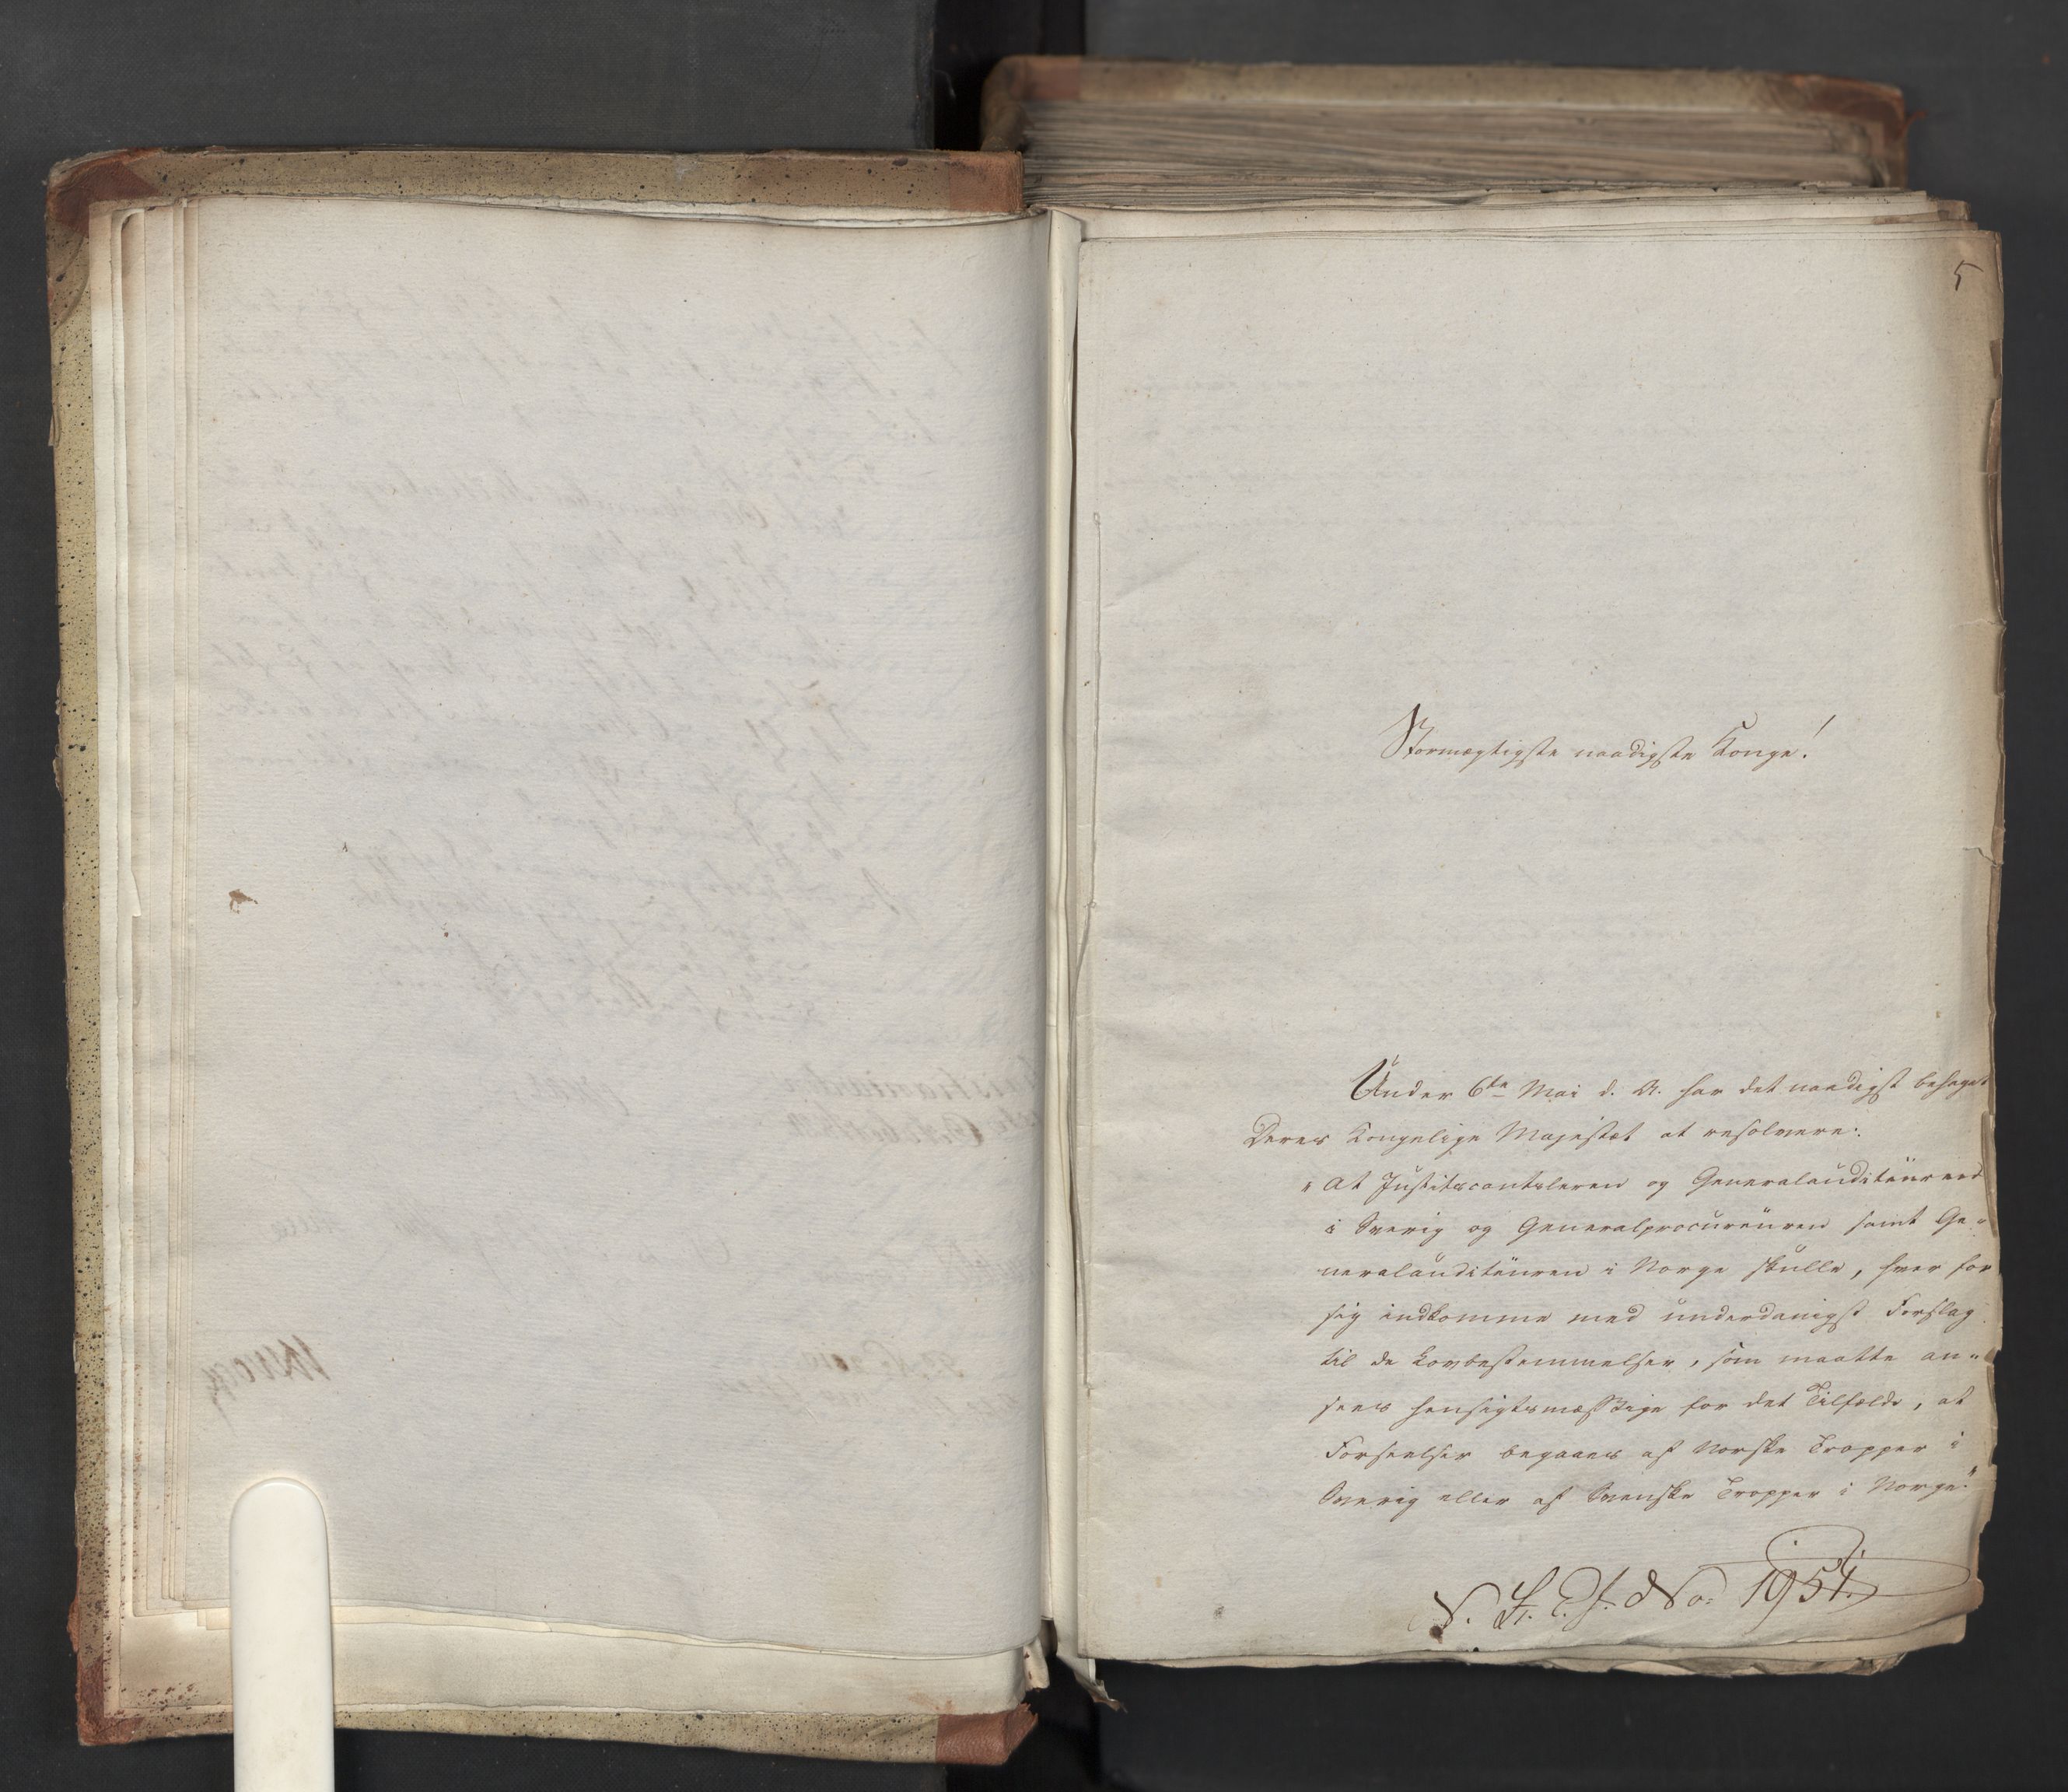 5
Stormægtigste naadigste Konge!
Under 6te Mai d. A. har det naadigst behaget
Deres Kongelige Majestæt at resolvere:
"At Justitscantsleren og Generalauditeuren
i Sverig og Generalprocureuren samt Ge-
neralauditeuren i Norge skulle, hver for
sig indkomme med underdanigst Forslag
til de Lovbestemmelser, som maatte an-
sees hensigtsmæssige for det Tilfælde, at
Forseelser begaaes af Norske Tropper i
Sverig eller af Svenske Tropper i Norge."
No: 1951.